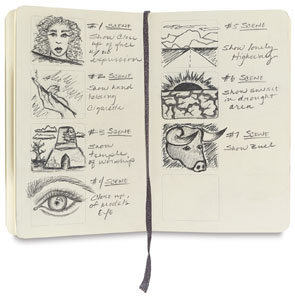 #1 SCENE
Show close
up of face
w/ no
expression
#2 SCENE
Show hand
holding
Cigarette
#3 SCENE
Show
temple
of worship
#4 SCENE
Close up,
of models
Eye
#5 SCENE
Show lonely
Highway
#6 SCENE
Show sunset
in drought
area
#7 SCENE
Show Bull